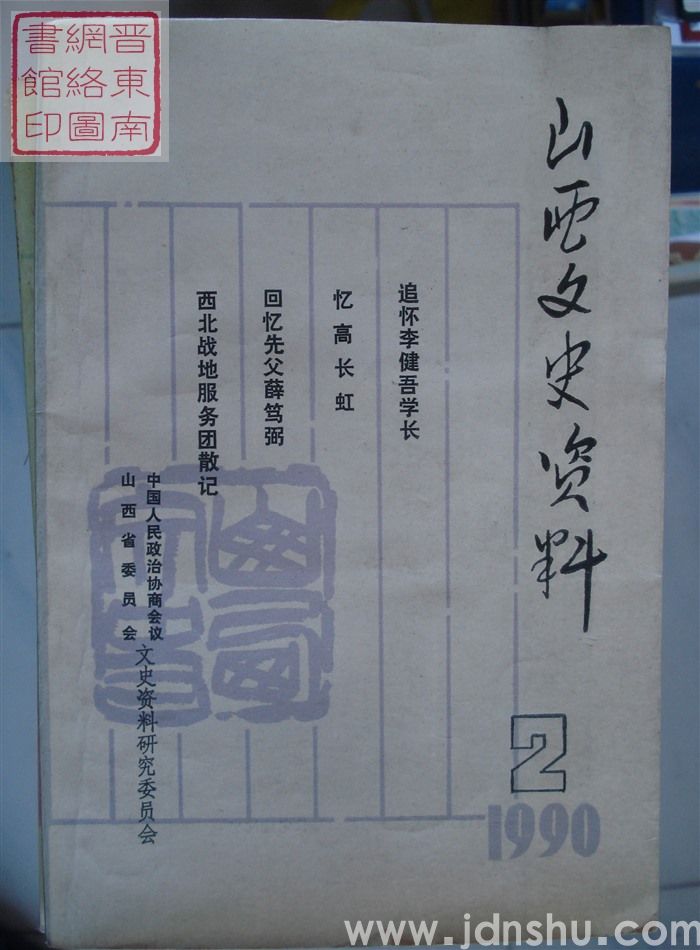 晋東南
網絡圖
書館印
山西文史资料
追怀李健吾学长
忆高长虹
回忆先父薛笃弼
西北战地服务团散记
中国人民政治协商会议
山西省委员会
文史资料研究委员会
2
1990
www.jdnshu.com